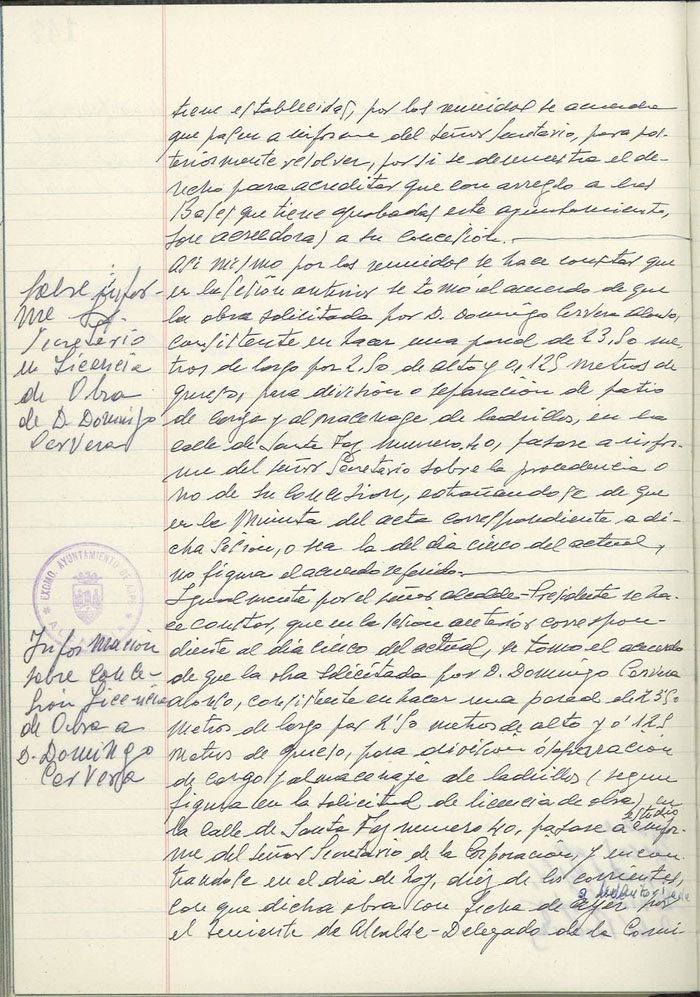 tiene establecidas, por los reunidos se acuerda
que pasen a informe del señor Secretario, para pos-
teriormente resolver, por si se demuestra el de-
recho para acreditar que con arreglo a las
Bases que tiene aprobadas este ayuntamiento,
son acreedoras a su concesión.
Sobre infor-
me Sr.
Secretario
en Licencia
de Obra
de D. Domingo
Cervera
Asi mismo por los reunidos se hace constar que
en la sesión anterior se tomó el acuerdo de que
la obra solicitada por D. Domingo Cervera Alonso,
consistente en hacer una pared de 23,50 me
tros de largo por 2.50 de alto y 0,125 metros de
grueso, para división o separación de patio
de carga y almacenage de ladrillos, en la
calle de Santa Faz numero, 40, pasase a infor-
me del señor Secretario sobre la procedencia o
no de su concesion, extrañandose de que
en la Minuta del acta correspondiente a di-
cha Sesion, o sea la del dia cinco del actual,
no figura el acuerdo referido.
EXCMO. AYUNTAMIENTO DE
Información
sobre conce-
sión Licencia
de Obra a
D. Domingo
Cervera
Igualmente por el señor alcalde-Presidente se ha-
ce constar, que en la sesion anterior correspon-
diente al dia cinco del actual, se tomo el acuerdo
de que la obra solicitada por D. Domingo Cervera
alonso, consistente en hacer una pared de 23'50
metros de largo por 2'50 metros de alto y 0'125
metros de grueso, para division ó separación
de cargo y almacenaje de ladrillos (segun
figura en la solicitud de licencia de obra) en
la calle de Santa Faz numero 40, pasase a estudio e infor-
me del señor Secretario de la Corporacion, y encon
trandose en el dia de hoy, diez de los corrientes,
con que dicha obra con fecha de ayer por
el Teniente de Alcalde-Delegado de la Comi-